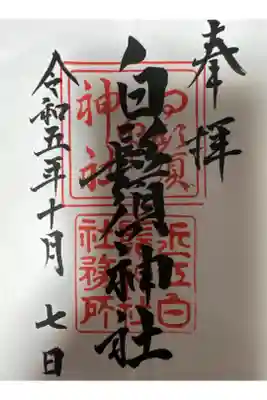 奉拝
白鬚神社
令和五年十月七日
白鬚
神社
近江白
鬚神社
社務所